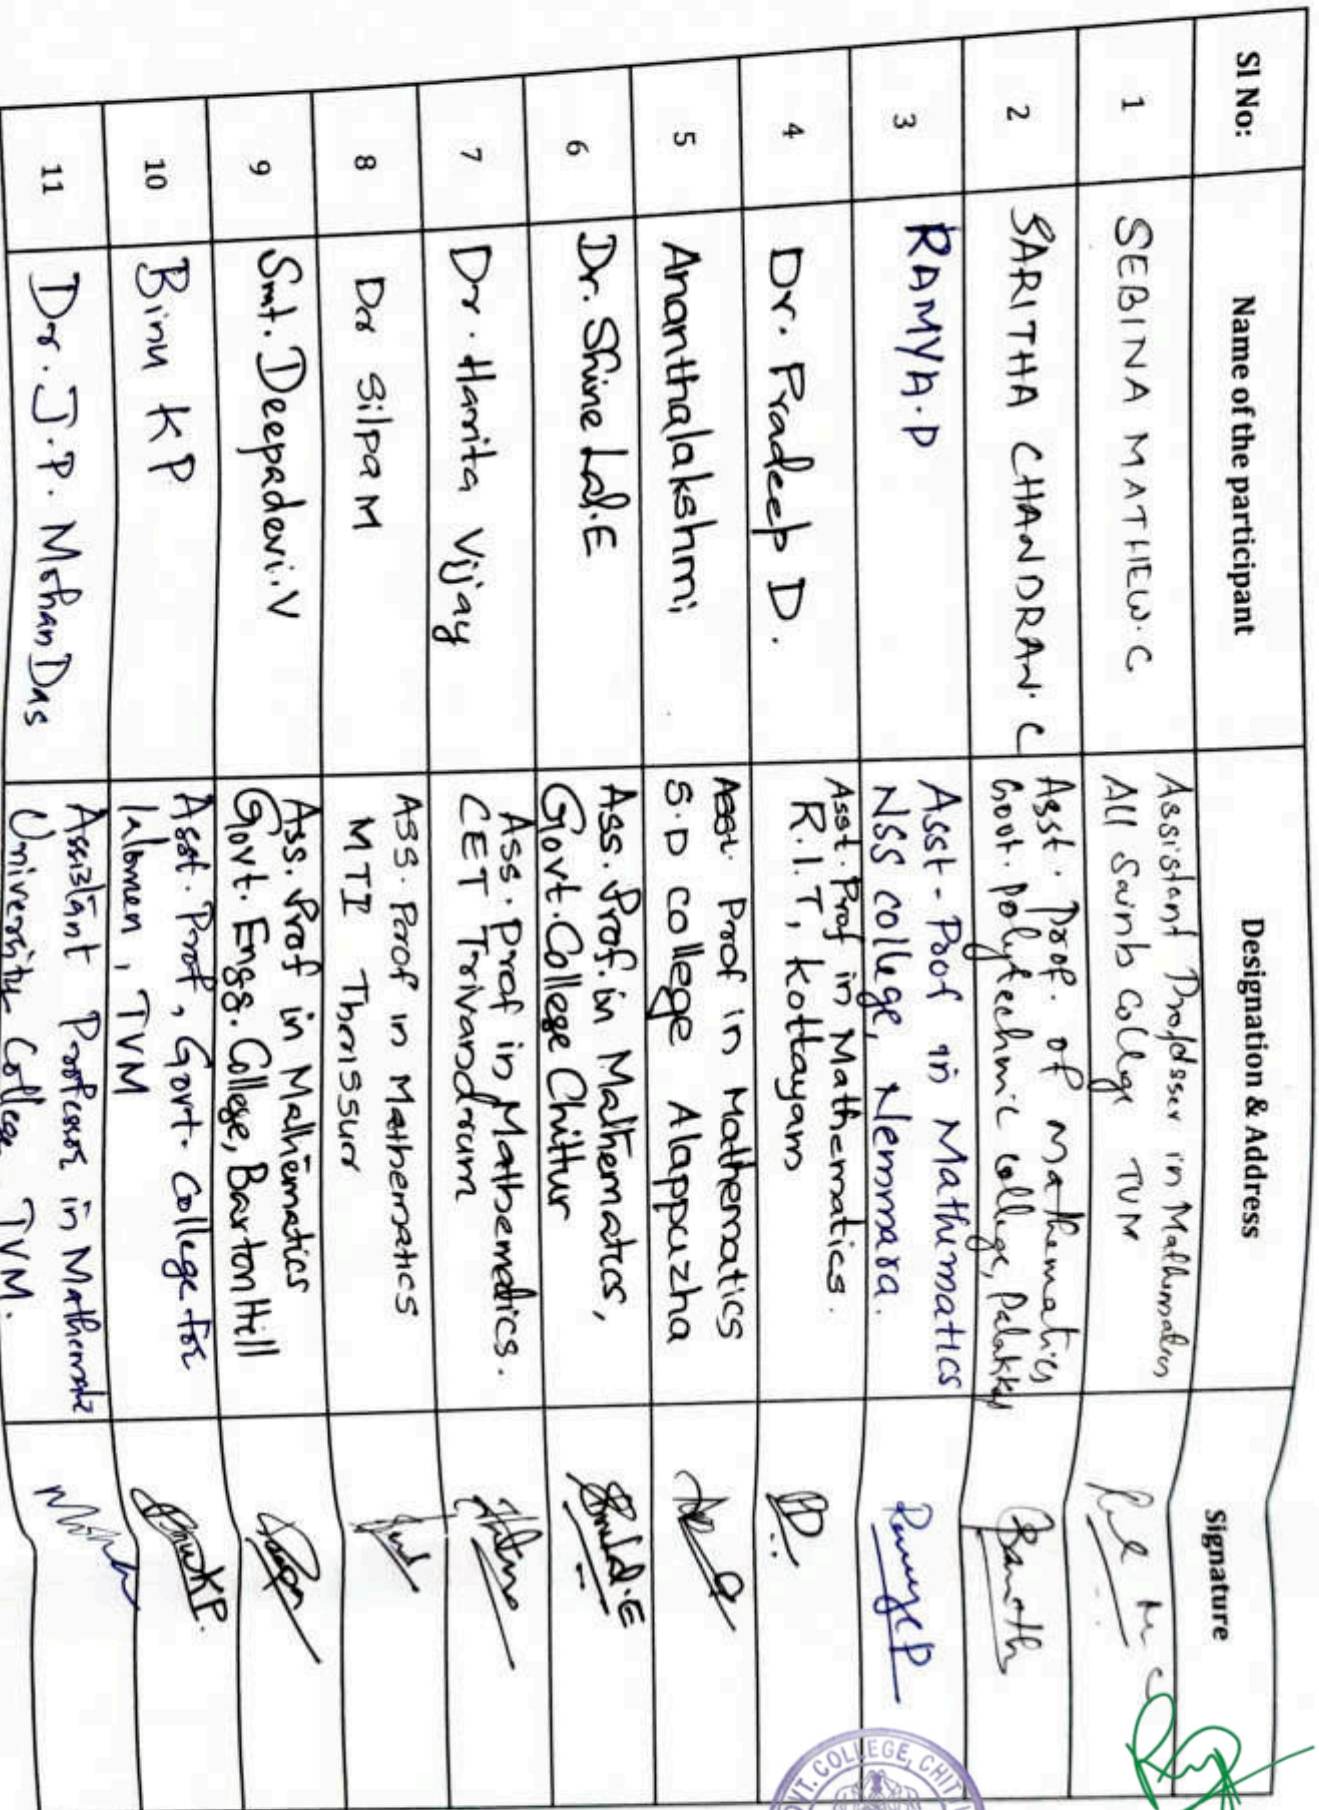 Sl No: Name of the participant Designation & Address Signature
1 SEBINA MATHEW.C Assistant Professer in Mathematics
All Saints College TVM
2 SARITHA CHANDRAN.C Asst. Prof. of Mathematics
Govt. Polytechnic College, Palakkad
3 RAMYA.P Asst-Prof in Mathematics
NSS college, Nemmara.
4 Dr. Pradeep D. Asst. Prof in Mathematics.
R.I.T, Kottayam
5 Ananthalakshmi Asst. Prof in Mathematics
S.D college Alappuzha
6 Dr. Shine Lal.E Ass. Prof. in Mathematics,
Govt. College Chittur
7 Dr. Harita Vijay Ass. Prof in Mathematics.
CET Trivandrum
8 Dr Silpa M Ass. Prof in Mathematics
MTI Thrissur
9 Smt. Deepadevi.V Ass. Prof in Mathematics
Govt. Engg. College, Barton Hill
10 Binu KP Asst. Prof, Govt. College for
, TVM
Binu KP.
11 Dr. J.P. Mohan Das Assistant Professor in Mathematic
University College, TVM.
VT. COLLEGE, CHIT